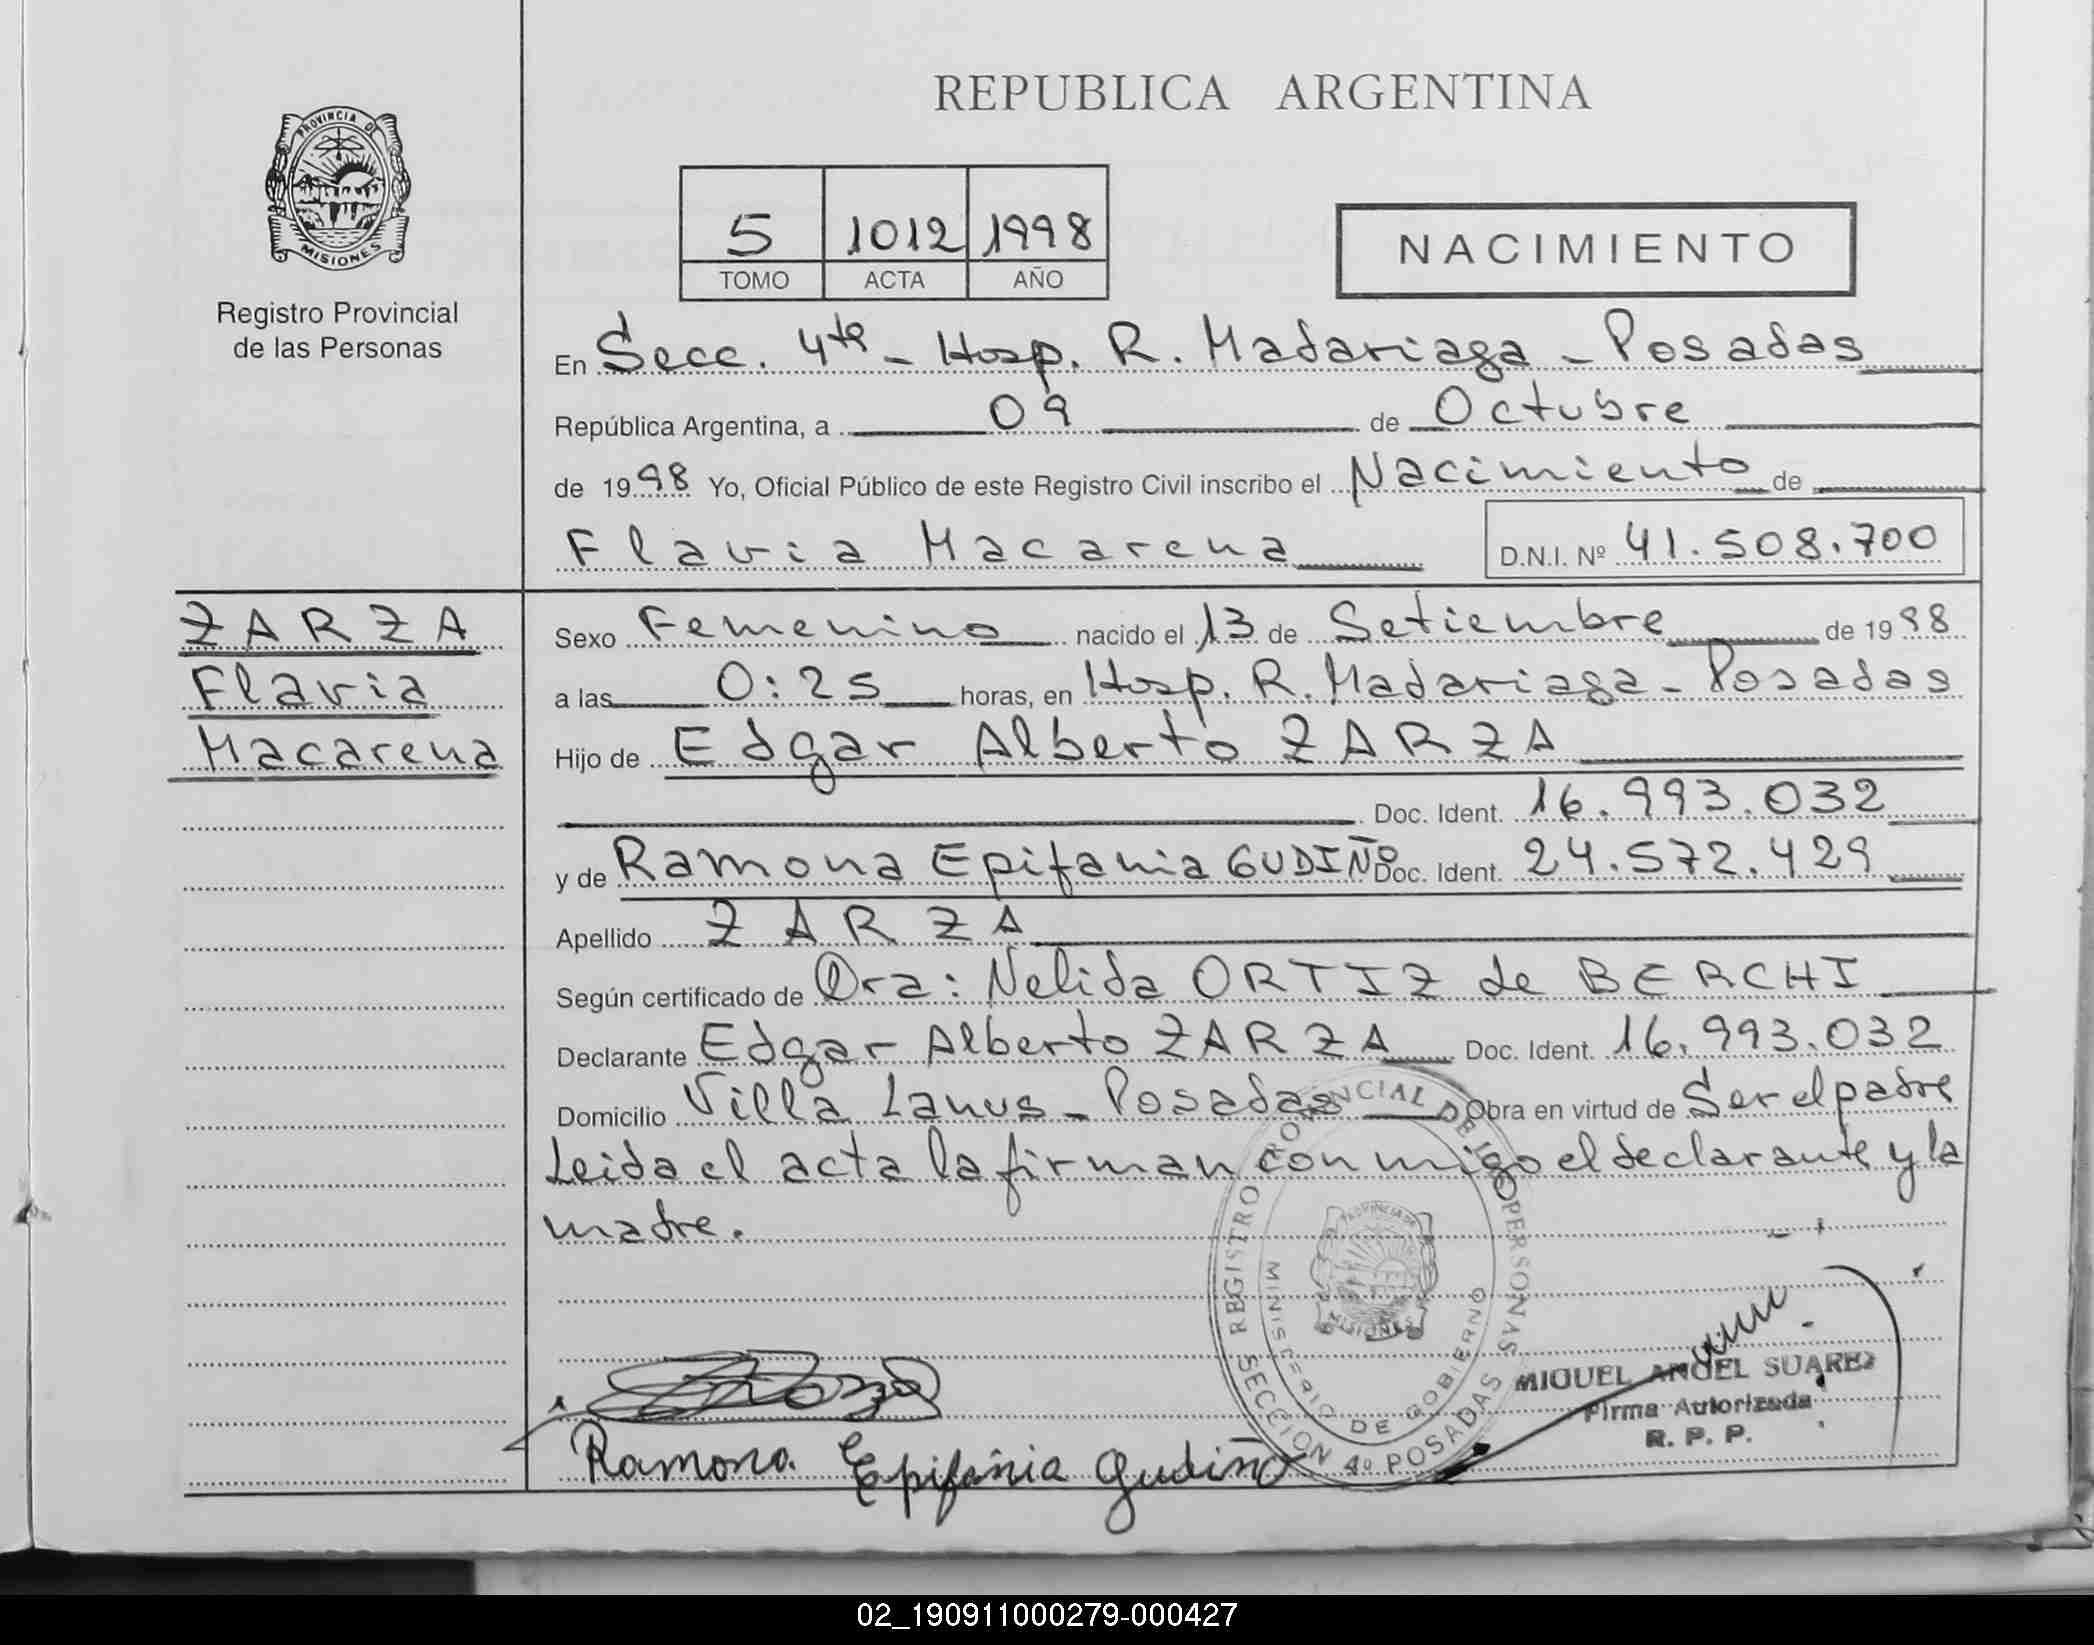 REPUBLICA ARGENTINA
PROVINCIA DE
MISIONES
Registro Provincial
de las Personas
5 1012 1998
TOMO ACTA AÑO
NACIMIENTO
En Secc. 4ta - Hosp. R. Madariaga - Posadas
República Argentina, a 09 de Octubre
de 1998 Yo, Oficial Público de este Registro Civil inscribo el Nacimiento de
Flavia Macarena D.N.I. Nº 41.508.700
ZARZA
Flavia
Macarena
Sexo Femenino nacido el 13 de Setiembre de 1998
a las 0:25 horas, en Hosp. R. Madariaga - Posadas
Hijo de Edgar Alberto ZARZA
Doc. Ident. 16.993.032
y de Ramona Epifania GUDIÑO Doc. Ident. 24.572.429
Apellido ZARZA
Según certificado de Dra: Nelida ORTIZ de BERCHI
Declarante Edgar Alberto ZARZA Doc. Ident. 16.993.032
Domicilio Villa Lanus - Posadas Obra en virtud de Ser el padre
Leida el acta la firman con migo el declarante y la
madre.
REGISTRO PROVINCIAL DE LAS PERSONAS
SECCION 4º POSADAS
MINISTERIO DE GOBIERNO
PROVINCIA DE
MISIONES
MIGUEL ANGEL SUAREZ
Firma Autorizada
R. P. P.
Ramona Epifania Gudiño
02_190911000279-000427